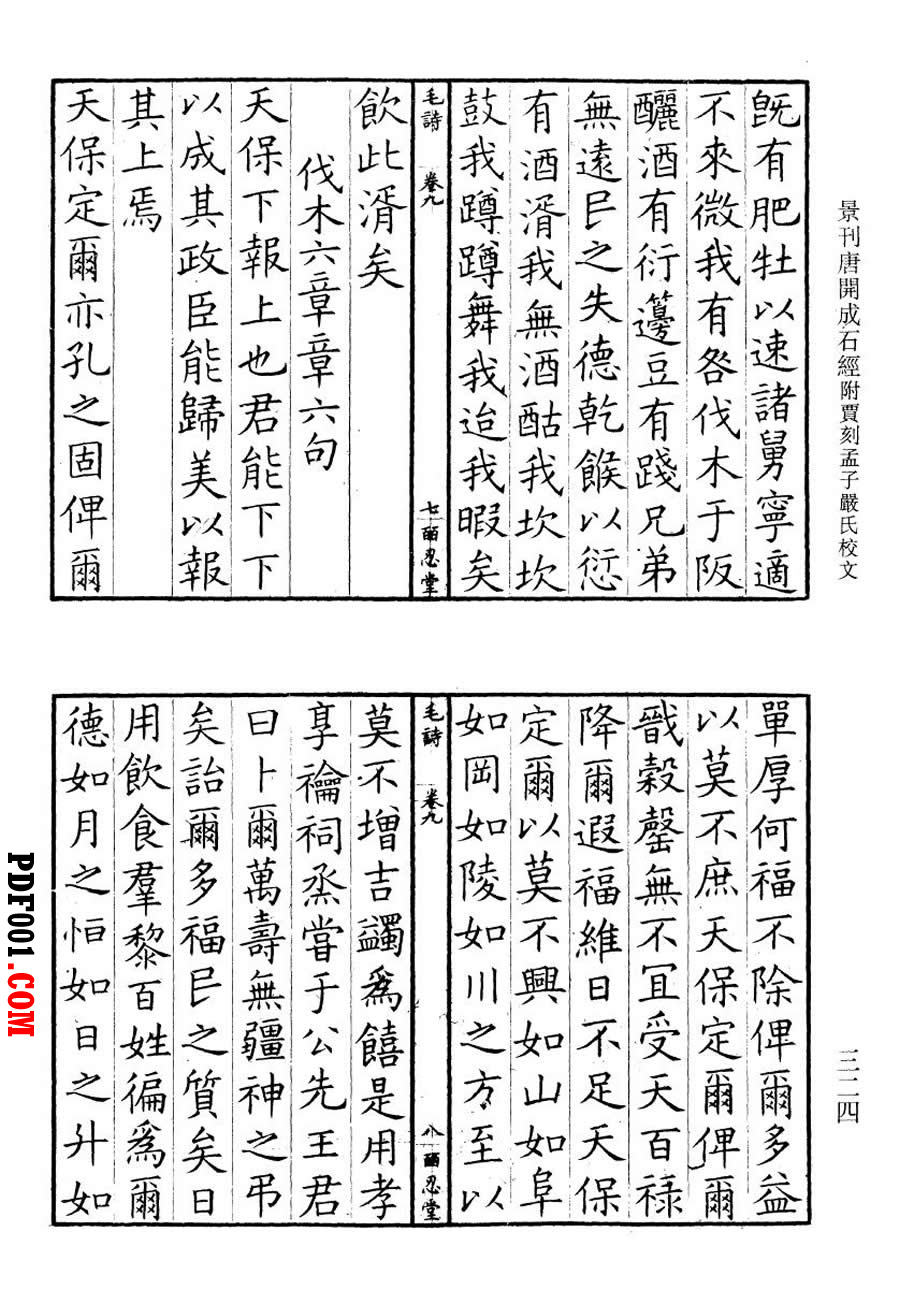 景刊唐開成石經附賈刻孟子嚴氏校文
三二四
既有肥牡以速諸舅寧適
不來微我有咎伐木于阪
釃酒有衍籩豆有踐兄弟
無遠民之失德乾餱以愆
有酒湑我無酒酤我坎坎
鼓我蹲蹲舞我迨我暇矣
毛詩 卷九 七 皕忍堂
飲此湑矣
伐木六章章六句
天保下報上也君能下下
以成其政臣能歸美以報
其上焉
天保定爾亦孔之固俾爾
單厚何福不除俾爾多益
以莫不庶天保定爾俾爾
戩穀罄無不冝受天百祿
降爾遐福維日不足天保
定爾以莫不興如山如阜
如岡如陵如川之方至以
毛詩 卷九 八 皕忍堂
莫不增吉蠲為饎是用孝
享禴祠烝嘗于公先王君
曰卜爾萬壽無疆神之弔
矣詒爾多福民之質矣日
用飲食羣黎百姓徧為爾
德如月之恒如日之升如
PDF001.COM